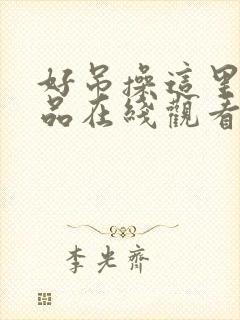 好吊操這里
品在綫觀看
李光齊